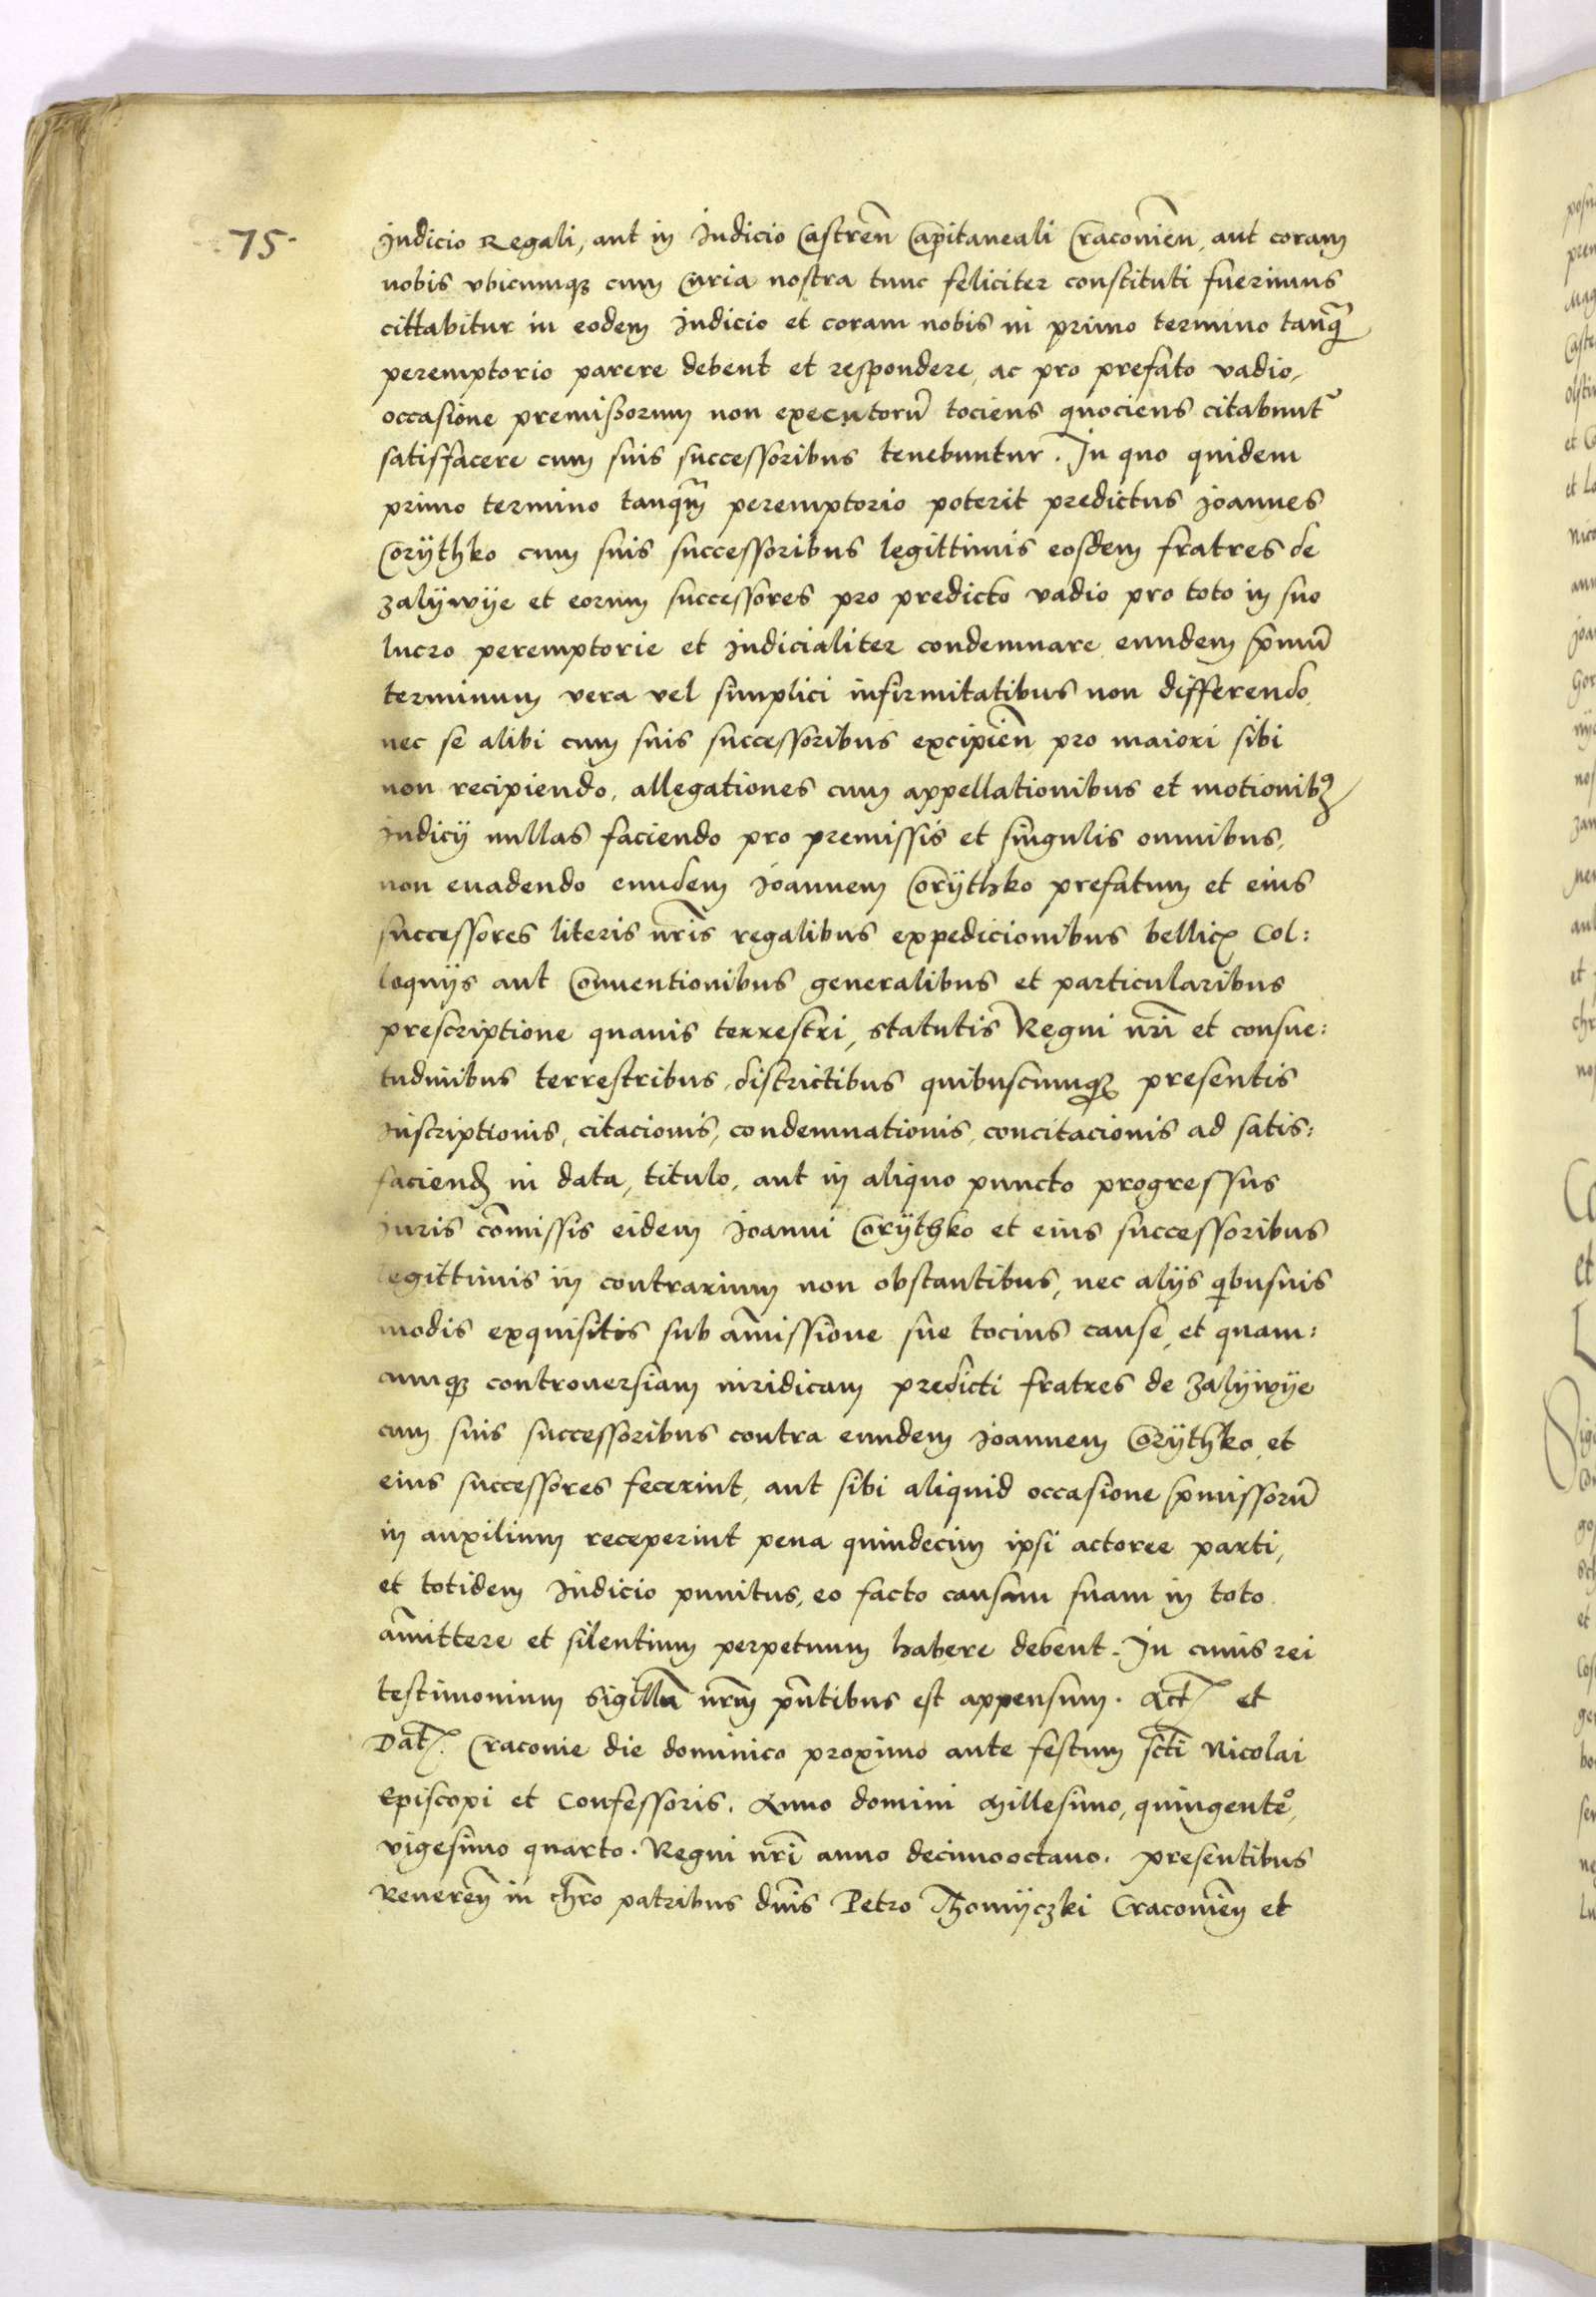 75.
Judicio Regali, aut in Judicio Castreñ Capitaneali Cracovieñ, aut coram
nobis vbicumqȝ cum Curia nostra tunc feliciter constituti fuerimus
cittabitur in eodem Judicio et coram nobis in primo termino tanq̃
peremptorio parere debent et respondere, ac pro prefato vadio,
occasione premißorum non executorũ tociens quociens citabunt᷑
satisfacere cum suis successoribus tenebuntur. In quo quidem
primo termino tanqm̃ peremptorio poterit predictus Joannes
Corÿthko cum suis successoribus legittimis eosdem fratres de
Zalÿwÿe et eorum successores pro predicto vadio pro toto in suo
lucro peremptorie et judicialiter condemnare eundem p̃mũ
terminum vera vel simplici infirmitatibus non differendo,
nec se alibi cum suis successoribus excipieñ pro maiori sibi
non recipiendo, allegationes cum appellationibus et motionibꝰ
judicÿ nullas faciendo pro premissis et singulis omnibus,
non euadendo eundem Joannem Corÿthko prefatum et eius
successores literis nr̃is regalibus expedicionibus bellicꝭ Col:
loquÿs aut Conuentionibus generalibus et particularibus
prescriptione quauis terrestri, statutis Regni nr̃i et consue:
tudinibus terrestribus, districtibus quibuscumqȝ presentis
inscriptionis, citacionis, condemnationis, concitacionis ad satis:
faciend in data, titulo, aut in aliquo puncto progressus
juris com̃issis eidem Joanni Corÿthko et eius successoribus
legittimis in contrarium non obstantibus, nec alÿs qibusuis
modis exquisitis sub am̃issione sue tocius cause, et quam:
cumqȝ controuersiam iuridicam predicti fratres de Zalÿwÿe
cum suis successoribus contra eundem Joannem Corÿthko, et
eius successores fecerint, aut sibi aliquid occasione p̃missorũ
in auxilium receperint pena quindecim ipsi actoree parti,
et totidem Judicio punitus, eo facto causam suam in toto
am̃ittere et silentium perpetuum habere debent. In cuius rei
testimonium Sigillũ nrm̃ pñtibus est appensum. Actꝭ et
Datꝭ. Cracouie die dominico proximo ante festum sc̃ti Nicolai
Episcopi et Confessoris. Anno domini Millesimo, quingenteº,
vigesimo quarto. Regni nr̃i anno decimooctauo. presentibus
Reuereñ in chr̃o patribus dñis Petro Thomÿczki Cracouieñ et